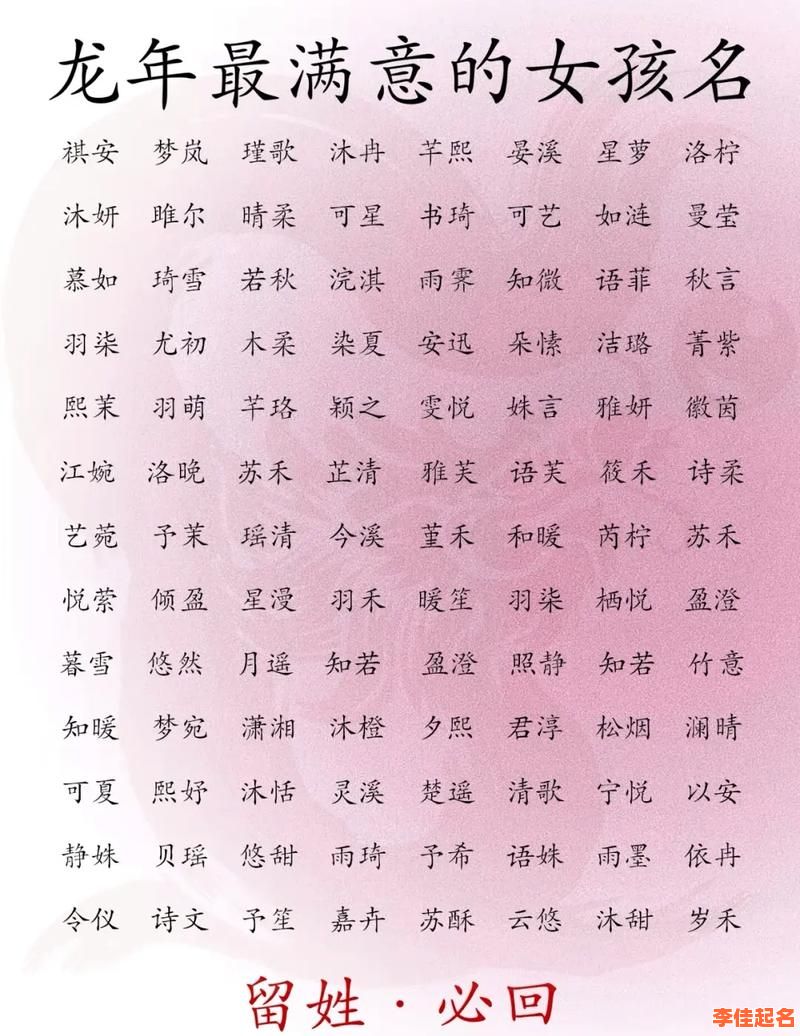 龙年最满意的女孩名
祺安 梦岚 瑾歌 沐冉 芊熙 晏溪 星萝 洛柠
沐妍 雎尔 晴柔 可星 书琦 可艺 如涟 曼莹
慕如 琦雪 若秋 浣淇 雨霁 知微 语菲 秋言
羽柒 尤初 木柔 染夏 安迅 朵愫 洁璐 菁紫
熙茉 羽萌 芊珞 颖之 雯悦 姝言 雅妍 徽茵
江婉 洛晚 苏禾 芷清 雅芙 语芙 筱禾 诗柔
艺菀 予茉 瑶清 今溪 堇禾 和暖 芮柠 苏禾
悦萦 倾盈 星漫 羽禾 暖笙 羽柒 栖悦 盈澄
暮雪 悠然 月遥 知若 盈澄 照静 知若 竹意
知暖 梦宛 潇湘 沐橙 夕熙 君淳 松烟 澜晴
可夏 熙妤 沐恬 灵溪 楚遥 清歌 宁悦 以安
静姝 贝瑶 悠甜 雨琦 予希 语姝 雨墨 依冉
令仪 诗文 予笙 嘉卉 苏酥 云悠 沐甜 岁禾
留姓·必回
李佳起名